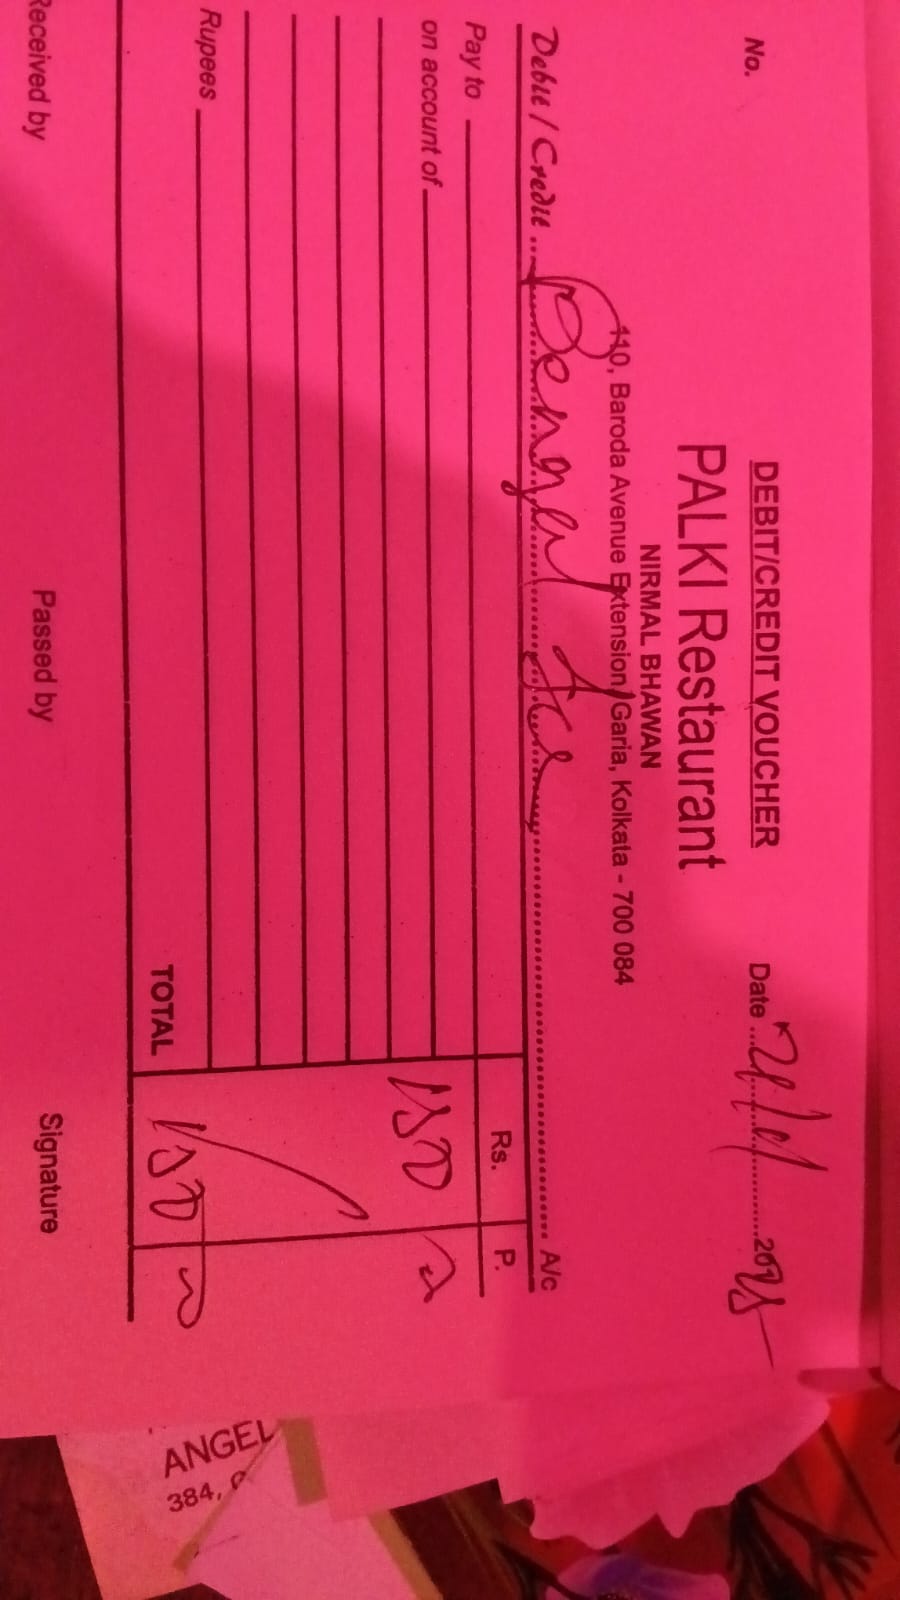 DEBIT/CREDIT VOUCHER
No.
Date
PALKI Restaurant
NIRMAL BHAWAN
110, Baroda Avenue Extension, Garia, Kolkata - 700 084
Debit / Credit Bengal Ice A/c
Pay to
Rs. P.
on account of
150
Rupees
TOTAL 150
Received by Passed by Signature
ANGEL
384,